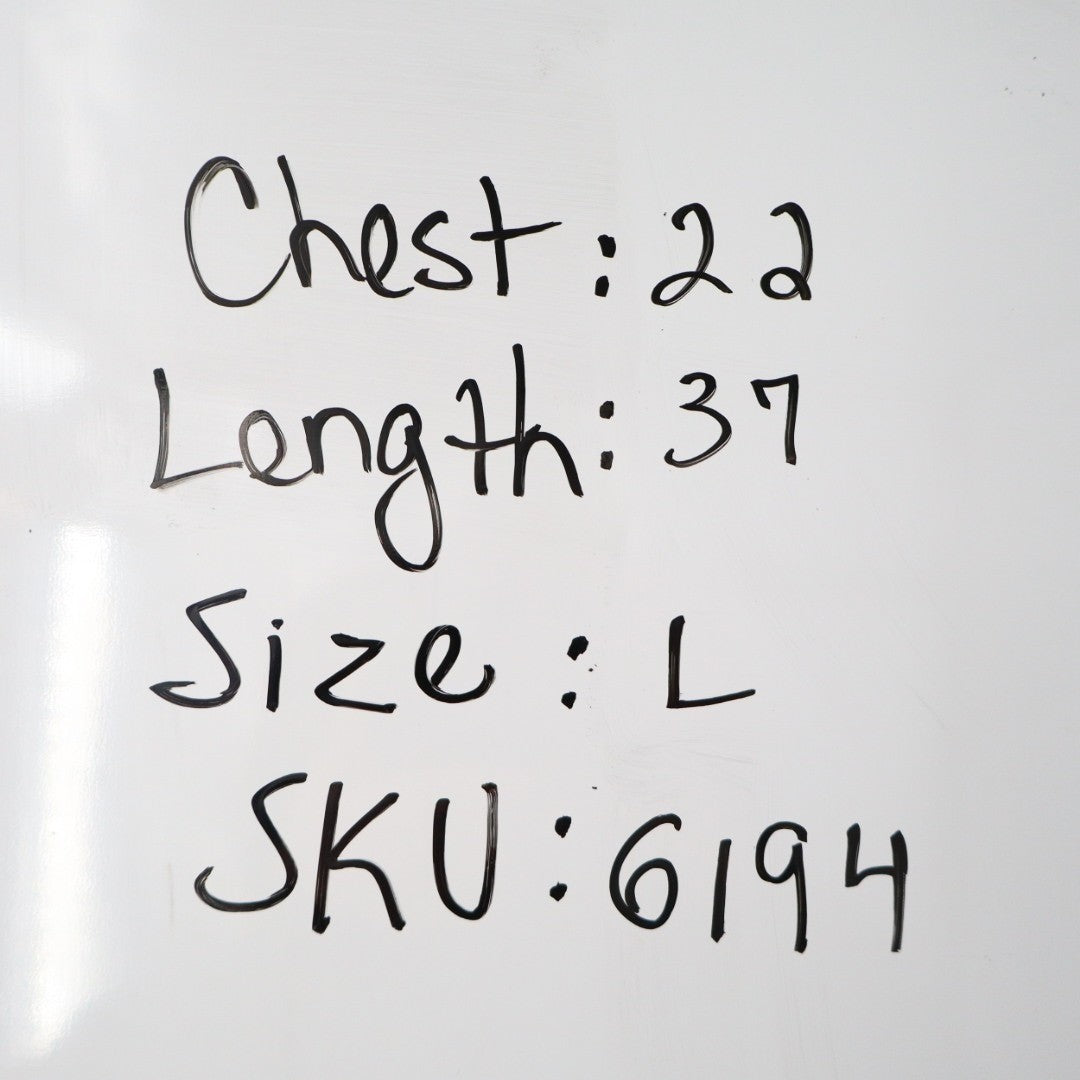 Chest: 22
Length: 37
Size: L
SKU: 6194